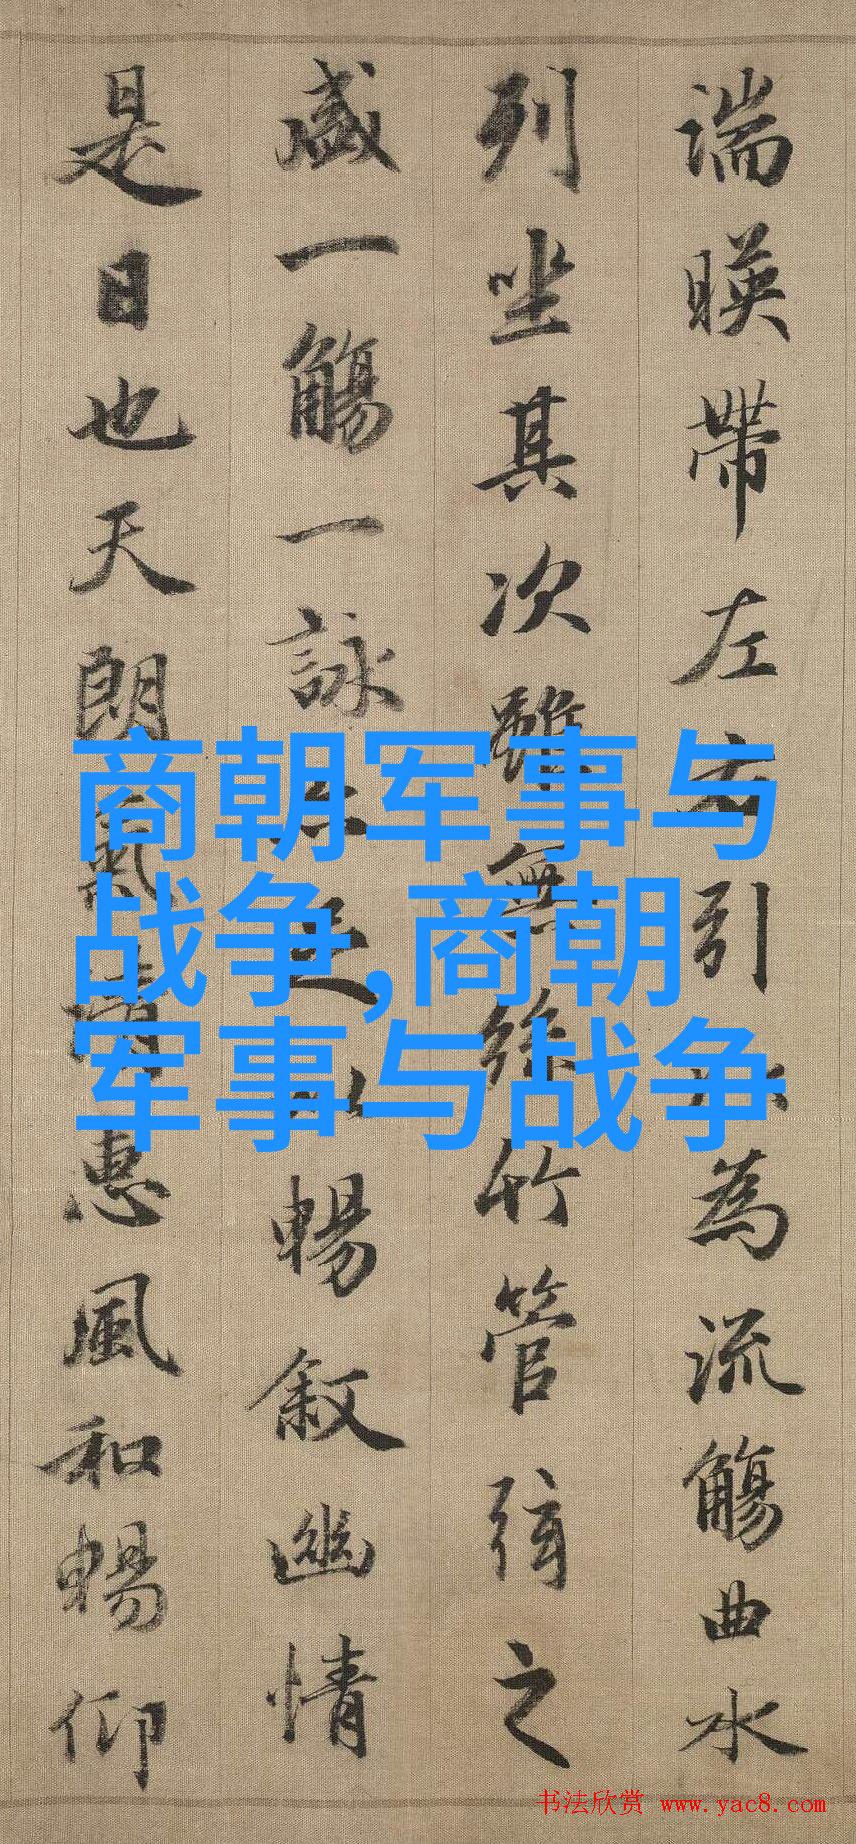 湍暎帶左右引以為流觴曲水
列坐其次雖無絲竹管弦之
盛一觴一詠亦足以暢叙幽情
是日也天朗氣清惠風和暢仰
商朝军事与
战争,商朝
军事与战争
书法欣赏 www.yac8.com